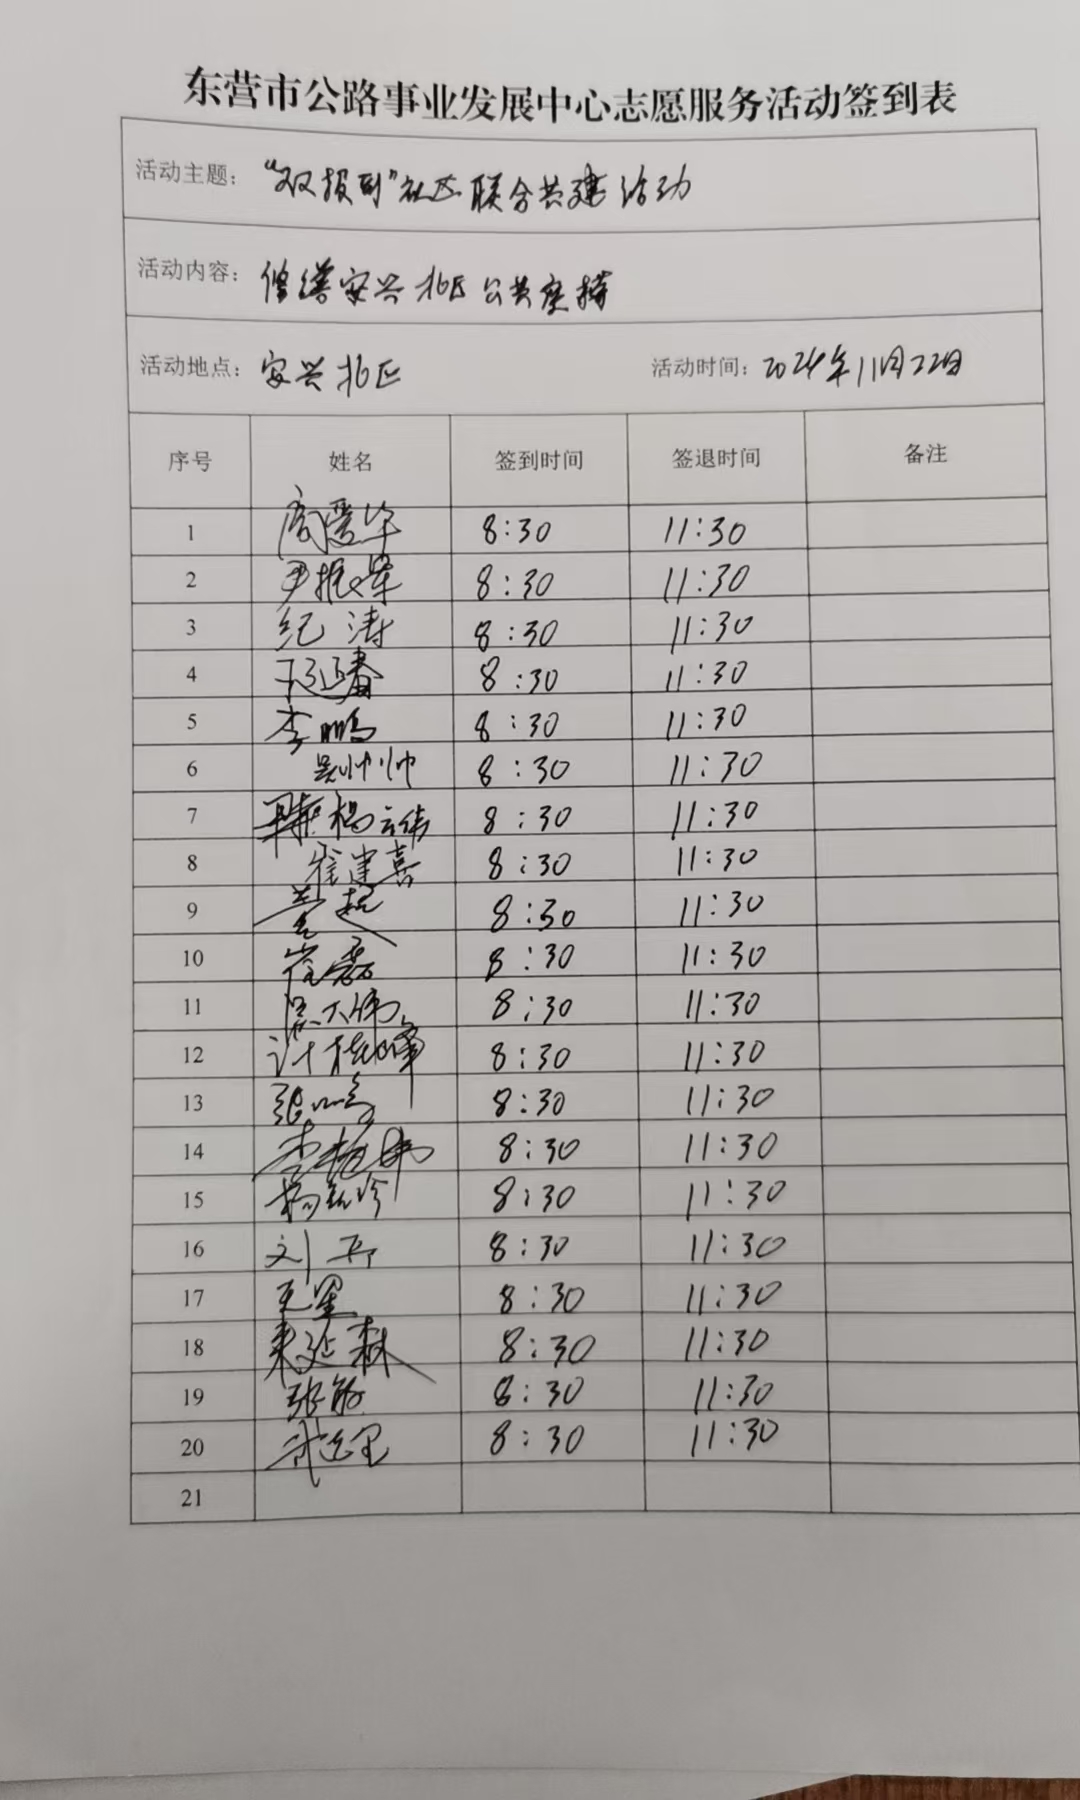 东营市公路事业发展中心志愿服务活动签到表
活动主题： “双报到”社区联合共建活动
活动内容： 修缮安兴北区公共座椅
活动地点： 安兴北区 活动时间： 2024年11月22日
序号 姓名 签到时间 签退时间 备注
1 8:30 11:30
2 尹振 8:30 11:30
3 纪涛 8:30 11:30
4 8:30 11:30
5 李鹏 8:30 11:30
6 吴帅帅 8:30 11:30
7 杨云伟 8:30 11:30
8 崔建喜 8:30 11:30
9 董超 8:30 11:30
10 崔磊 8:30 11:30
11 大伟 8:30 11:30
12 许 峰 8:30 11:30
13 张 8:30 11:30
14 李 8:30 11:30
15 杨 8:30 11:30
16 刘 8:30 11:30
17 8:30 11:30
18 延森 8:30 11:30
19 张敏 8:30 11:30
20 8:30 11:30
21